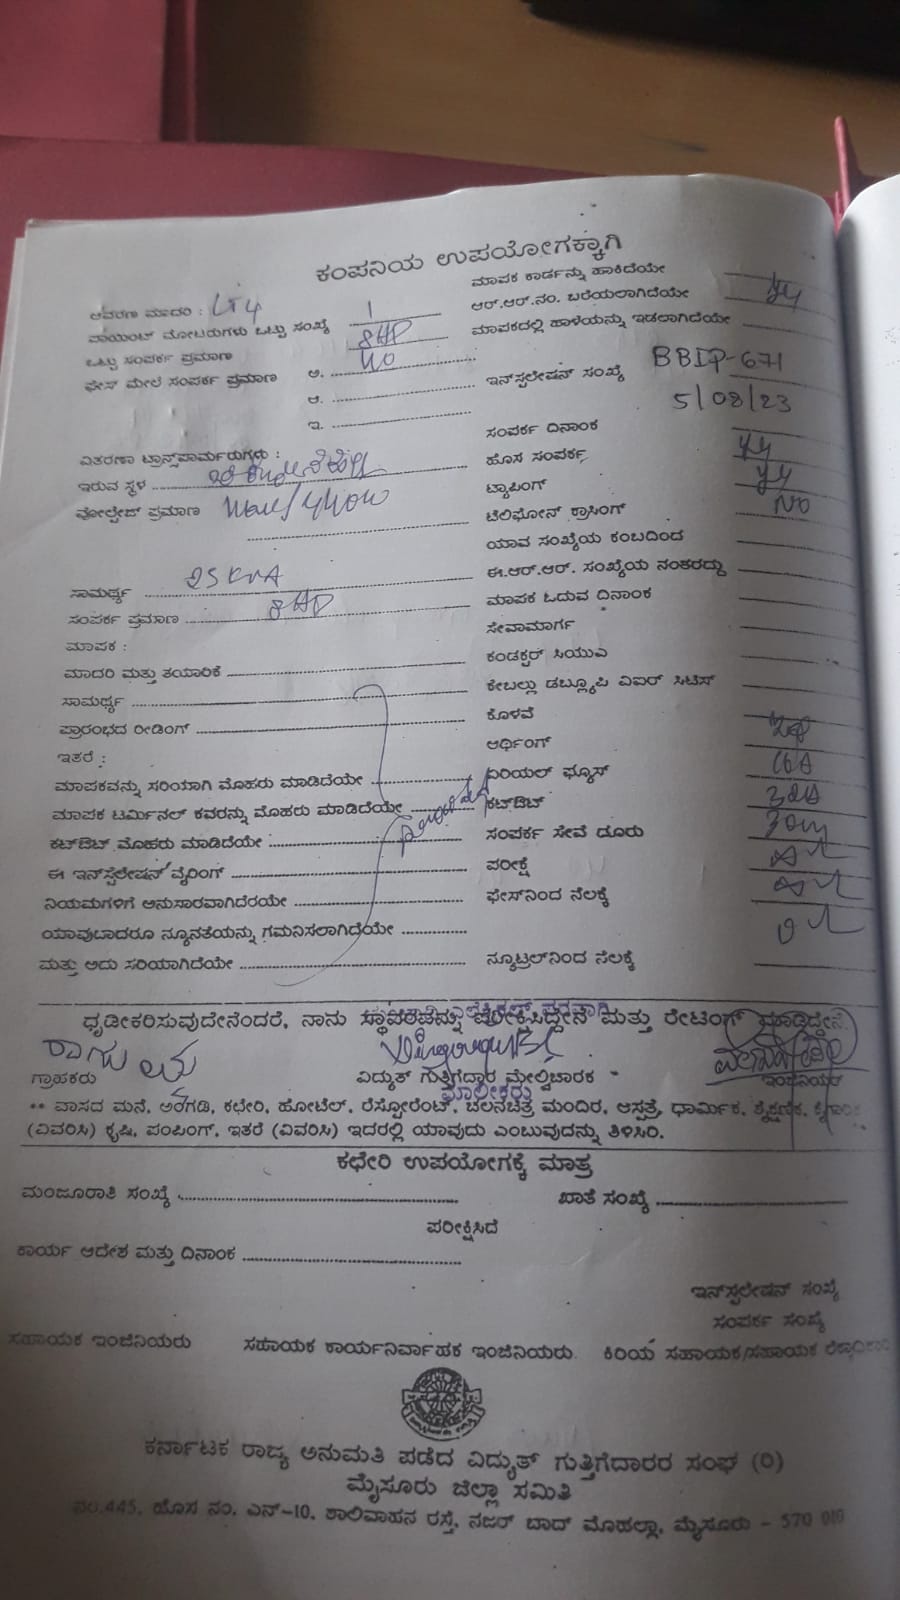 ಕಂಪನಿಯ ಉಪಯೋಗಕ್ಕಾಗಿ
ಆವರಣ ಮಾದರಿ : LT4
ಪಾಯಿಂಟ್ ಮೋಟರುಗಳು ಒಟ್ಟು ಸಂಖ್ಯೆ 1
ಒಟ್ಟು ಸಂಪರ್ಕ ಪ್ರಮಾಣ 8HP
ಫೇಸ್ ಮೇಲೆ ಸಂಪರ್ಕ ಪ್ರಮಾಣ ಅ.
ಆ.
ಇ.
ವಿತರಣಾ ಟ್ರಾನ್ಸ್‌ಪಾರ್ಮರುಗಳು :
ಇರುವ ಸ್ಥಳ
ವೋಲ್ಟೇಜ್ ಪ್ರಮಾಣ
ಸಾಮರ್ಥ್ಯ 25 KVA
ಸಂಪರ್ಕ ಪ್ರಮಾಣ 8 HP
ಮಾಪಕ :
ಮಾದರಿ ಮತ್ತು ತಯಾರಿಕೆ
ಸಾಮರ್ಥ್ಯ
ಪ್ರಾರಂಭದ ರೀಡಿಂಗ್
ಇತರೆ :
ಮಾಪಕವನ್ನು ಸರಿಯಾಗಿ ಮೊಹರು ಮಾಡಿದೆಯೇ
ಮಾಪಕ ಟರ್ಮಿನಲ್ ಕವರನ್ನು ಮೊಹರು ಮಾಡಿದೆಯೇ
ಕಟ್‌ಔಟ್ ಮೊಹರು ಮಾಡಿದೆಯೇ
ಈ ಇನ್‌ಸ್ಟಲೇಷನ್ ವೈರಿಂಗ್
ನಿಯಮಗಳಿಗೆ ಅನುಸಾರವಾಗಿದೆರಯೇ
ಯಾವುಬಾದರೂ ನ್ಯೂನತೆಯನ್ನು ಗಮನಿಸಲಾಗಿದೆಯೇ
ಮತ್ತು ಅದು ಸರಿಯಾಗಿದೆಯೇ
ಮಾಪಕ ಕಾರ್ಡನ್ನು ಹಾಕಿದೆಯೇ
ಆರ್.ಆರ್.ನಂ. ಬರೆಯಲಾಗಿದೆಯೇ
ಮಾಪಕದಲ್ಲಿ ಹಾಳೆಯನ್ನು ಇಡಲಾಗಿದೆಯೇ
ಇನ್‌ಸ್ಟಲೇಷನ್ ಸಂಖ್ಯೆ BBIP-671
5/08/23
ಸಂಪರ್ಕ ದಿನಾಂಕ
ಹೊಸ ಸಂಪರ್ಕ
ಟ್ಯಾಪಿಂಗ್
ಟೆಲಿಫೋನ್ ಕ್ರಾಸಿಂಗ್ NO
ಯಾವ ಸಂಖ್ಯೆಯ ಕಂಬದಿಂದ
ಈ.ಆರ್.ಆರ್. ಸಂಖ್ಯೆಯ ನಂತರದ್ದು
ಮಾಪಕ ಓದುವ ದಿನಾಂಕ
ಸೇವಾಮಾರ್ಗ
ಕಂಡಕ್ಟರ್ ಸಿಯುವಿ
ಕೇಬಲ್ಲು ಡಬ್ಲ್ಯೂಪಿ ವಿಐಆರ್ ಸಿಟಿಸ್
ಕೊಳವೆ
ಆರ್ಥಿಂಗ್
ಏರಿಯಲ್ ಫ್ಯೂಸ್
ಕಟ್‌ಔಟ್
ಸಂಪರ್ಕ ಸೇವೆ ದೂರು
ಪರೀಕ್ಷೆ
ಫೇಸ್‌ನಿಂದ ನೆಲಕ್ಕೆ
ನ್ಯೂಟ್ರಲ್‌ನಿಂದ ನೆಲಕ್ಕೆ
ಧೃಡೀಕರಿಸುವುದೇನೆಂದರೆ, ನಾನು ಸ್ಥಾವರವನ್ನು ಪರೀಕ್ಷಿಸಿದ್ದೇನೆ ಮತ್ತು ರೇಟಿಂಗ್ ಮಾಡಿದ್ದೇನೆ
ಗ್ರಾಹಕರು ವಿದ್ಯುತ್ ಗುತ್ತಿಗೆದಾರ ಮೇಲ್ವಿಚಾರಕ ಇಂಜಿನಿಯರ್
ಮಾಲೀಕರು
** ವಾಸದ ಮನೆ, ಅಂಗಡಿ, ಕಛೇರಿ, ಹೋಟೆಲ್, ರೆಸ್ಟೋರೆಂಟ್, ಚಲನಚಿತ್ರ ಮಂದಿರ, ಆಸ್ಪತ್ರೆ, ಧಾರ್ಮಿಕ, ಶೈಕ್ಷಣಿಕ,
(ವಿವರಿಸಿ) ಕೃಷಿ, ಪಂಪಿಂಗ್, ಇತರೆ (ವಿವರಿಸಿ) ಇದರಲ್ಲಿ ಯಾವುದು ಎಂಬುವುದನ್ನು ತಿಳಿಸಿರಿ.
ಕಛೇರಿ ಉಪಯೋಗಕ್ಕೆ ಮಾತ್ರ
ಮಂಜೂರಾತಿ ಸಂಖ್ಯೆ ಖಾತೆ ಸಂಖ್ಯೆ
ಪರೀಕ್ಷಿಸಿದೆ
ಕಾರ್ಯ ಆದೇಶ ಮತ್ತು ದಿನಾಂಕ
ಇನ್‌ಸ್ಟಲೇಷನ್ ಸಂಖ್ಯೆ
ಸಂಪರ್ಕ ಸಂಖ್ಯೆ
ಸಹಾಯಕ ಇಂಜಿನಿಯರು ಸಹಾಯಕ ಕಾರ್ಯನಿರ್ವಾಹಕ ಇಂಜಿನಿಯರು. ಕಿರಿಯ ಸಹಾಯಕ/ಸಹಾಯಕ
ಕರ್ನಾಟಕ ರಾಜ್ಯ ಅನುಮತಿ ಪಡೆದ ವಿದ್ಯುತ್ ಗುತ್ತಿಗೆದಾರರ ಸಂಘ (ರಿ)
ಮೈಸೂರು ಜಿಲ್ಲಾ ಸಮಿತಿ
ನಂ.445, ಹೊಸ ನಂ. ಎನ್-10, ಶಾಲಿವಾಹನ ರಸ್ತೆ, ನಜರ್ ಬಾದ್ ಮೊಹಲ್ಲಾ, ಮೈಸೂರು - 570 010